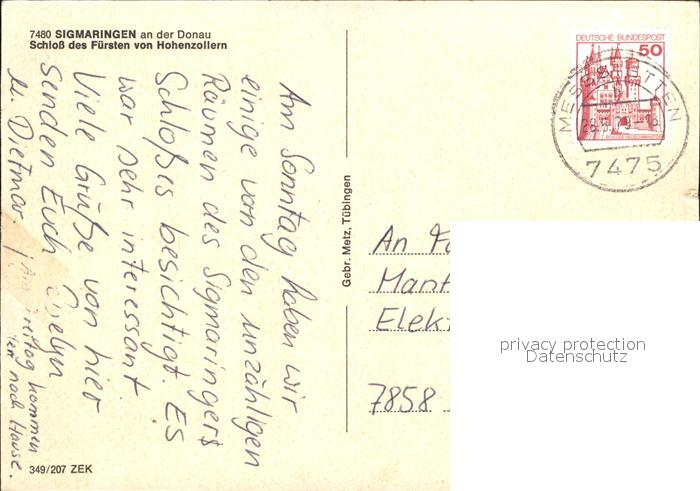 7480 SIGMARINGEN an der Donau
Schloß des Fürsten von Hohenzollern
Am Sonntag haben wir
einige von den unzähligen
Räumen des Sigmaringers
Schloßes besichtigt. Es
war sehr interessant.
Viele Grüße von hier
senden Euch
u. Dietmar.
kommen
noch Hause.
349/207 ZEK
Gebr. Metz, Tübingen
DEUTSCHE BUNDESPOST
50
MESSSTETTEN
7475
An
Elek
7858
privacy protection
Datenschutz